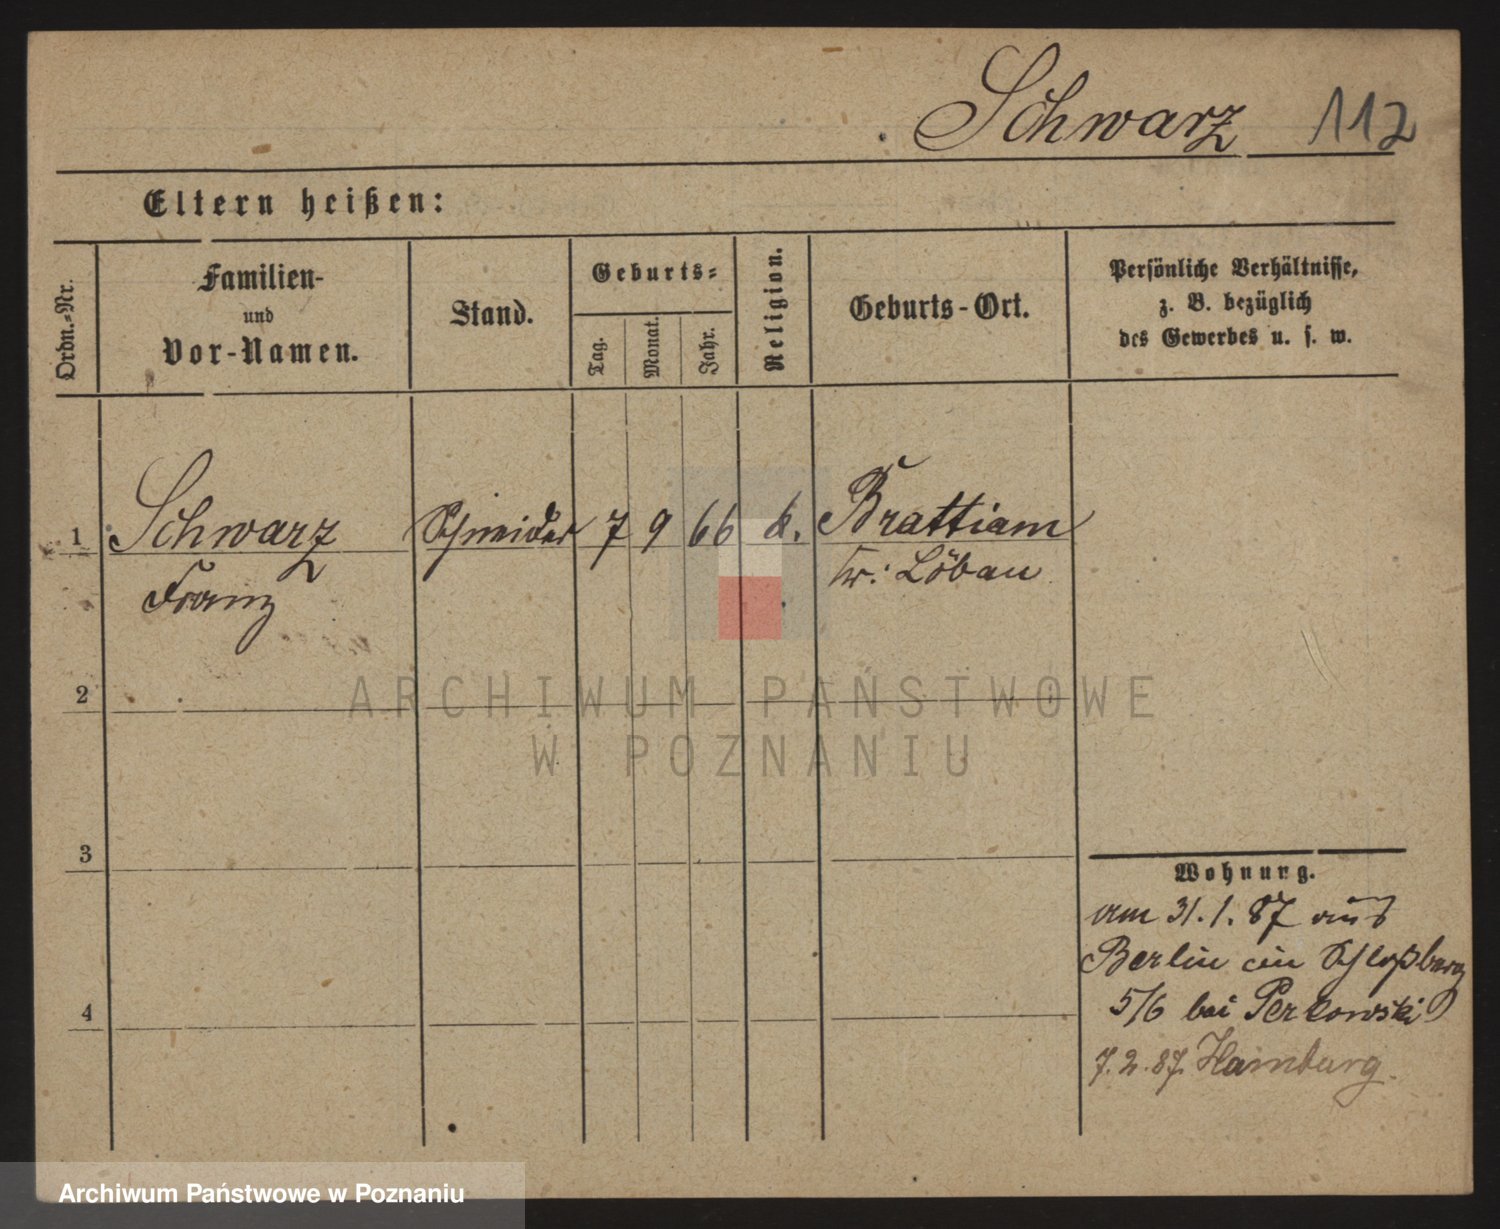 Schwarz 112
Eltern heißen:
Ordn.-Nr.
Familien-
und
Vor-Namen.
Stand.
Geburts-
Tag.
Monat.
Jahr.
Religion.
Geburts-Ort.
Persönliche Verhältnisse,
z. B. bezüglich
des Gewerbes u. s. w.
1 Schwarz Schneider 7 9 66 k. Brattiam
Franz Kr: Löbau
2
3
4
Wohnung.
am 31.1.87 aus
Berlin in Schloßberg
5/6 bei Perkowski
7.2.87. Hamburg.
ARCHIWUM PAŃSTWOWE
W POZNANIU
Archiwum Państwowe w Poznaniu